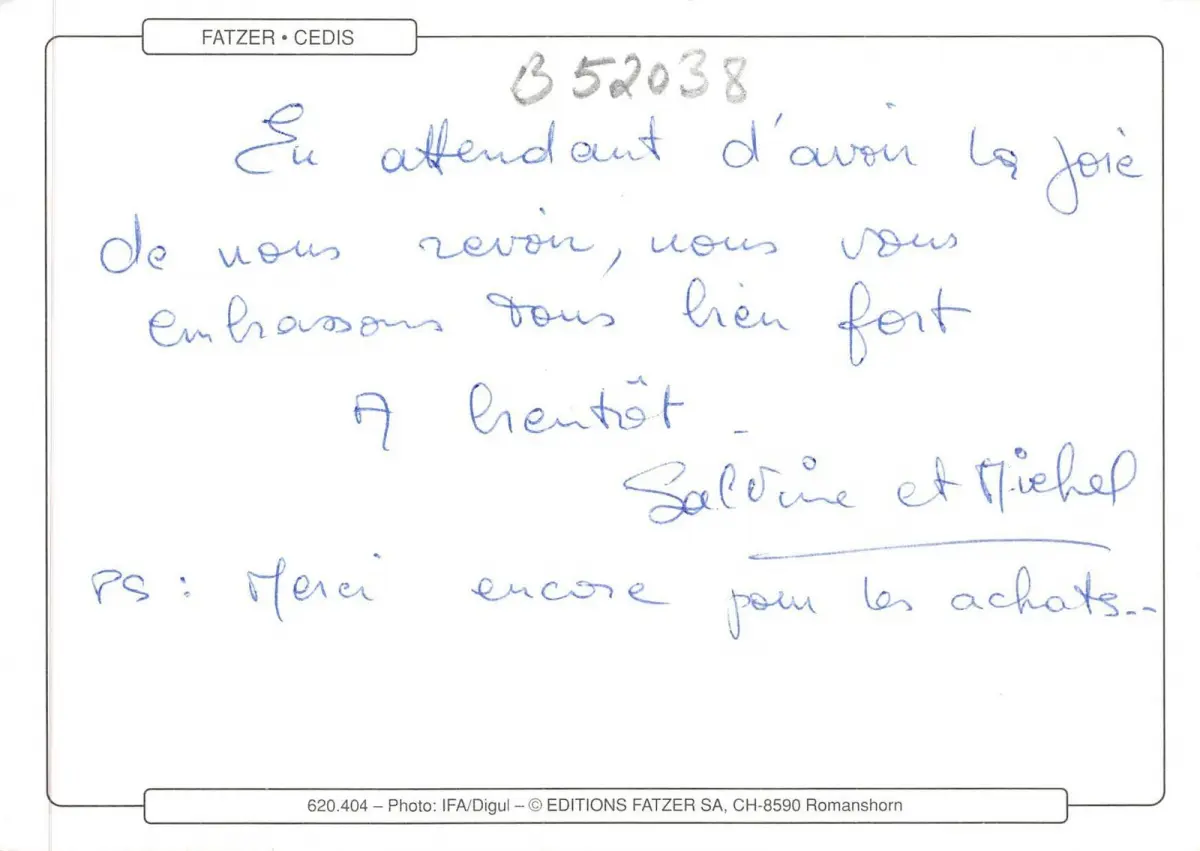 FATZER • CEDIS
B 52038
En attendant d'avoir la joie
de nous revoir, nous vous
embrassons tous bien fort
A bientôt -
et Michel
PS : Merci encore pour les achats...
620.404 – Photo: IFA/Digul – © EDITIONS FATZER SA, CH-8590 Romanshorn